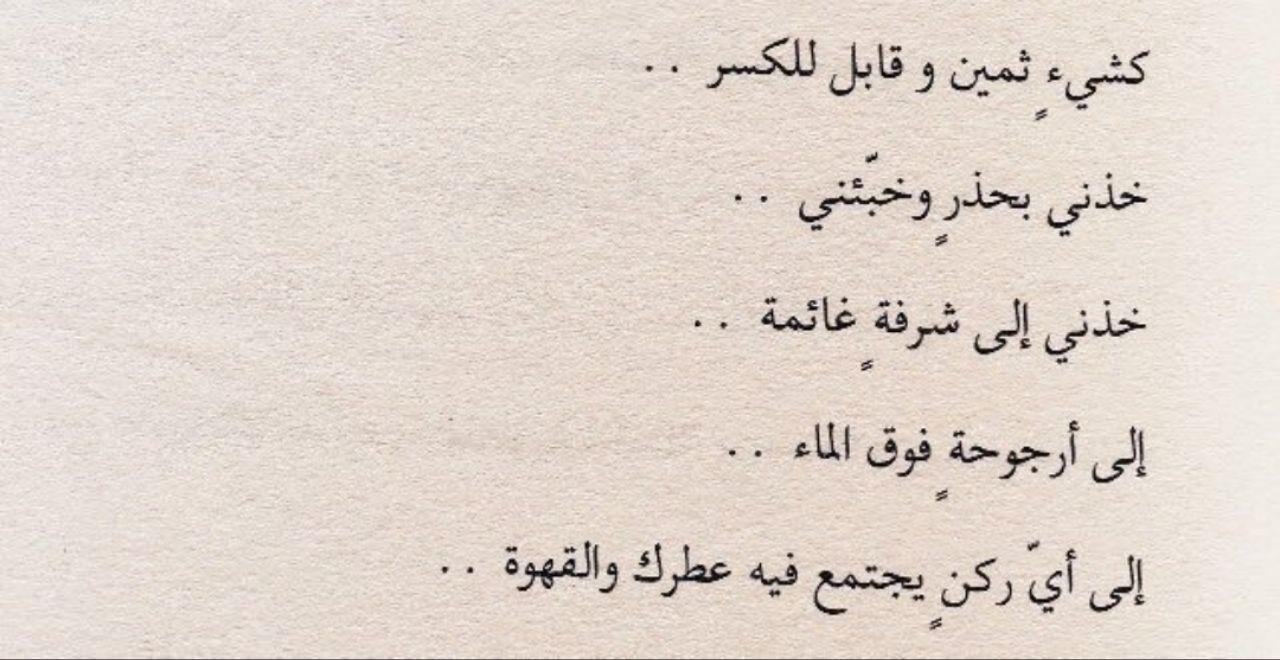 كشيءٍ ثمين و قابل للكسر . .
خذني بحذرٍ وخبّئني . .
خذني إلى شرفةٍ غائمة . .
إلى أرجوحةٍ فوق الماء . .
إلى أيّ ركنٍ يجتمع فيه عطرك والقهوة . .